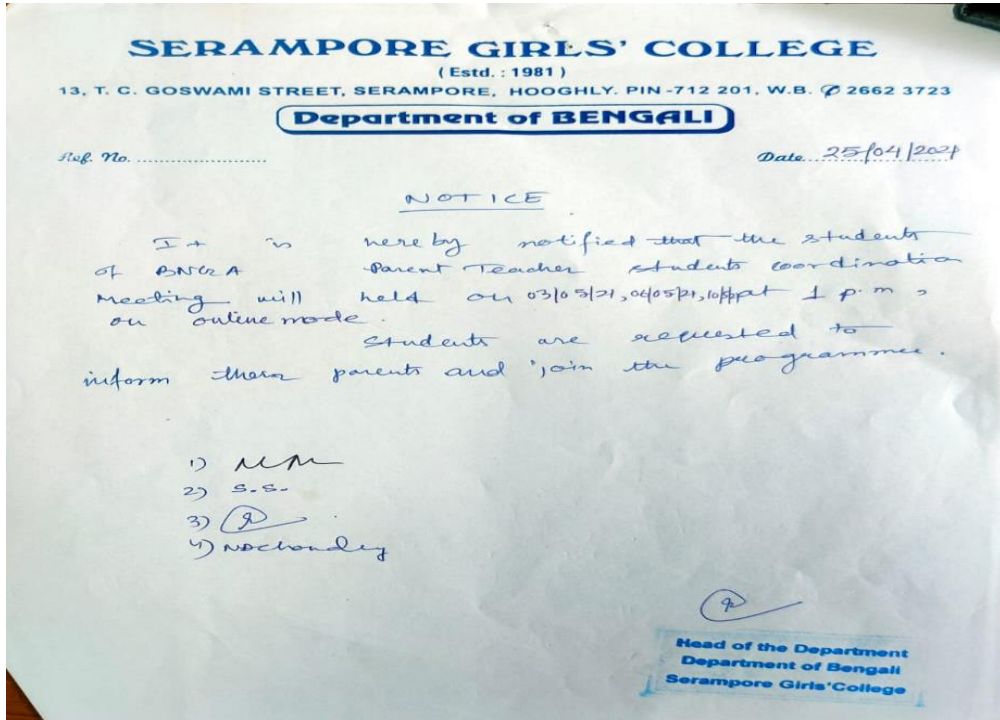 SERAMPORE GIRLS' COLLEGE
( Estd. : 1981 )
13, T. C. GOSWAMI STREET, SERAMPORE, HOOGHLY. PIN -712 201, W.B. ✆ 2662 3723
Department of BENGALI
Ref. No. ........................
Date 25/04/2021
NOTICE
It is hereby notified that the students
of BNGA Parent Teacher students coordination
Meeting will held on 03/05/21, 04/05/21, at 1 p.m,
on online mode.
Students are requested to
inform there parents and join the programme.
1)
2) S.S.
3)
4)
Head of the Department
Department of Bengali
Serampore Girls'College